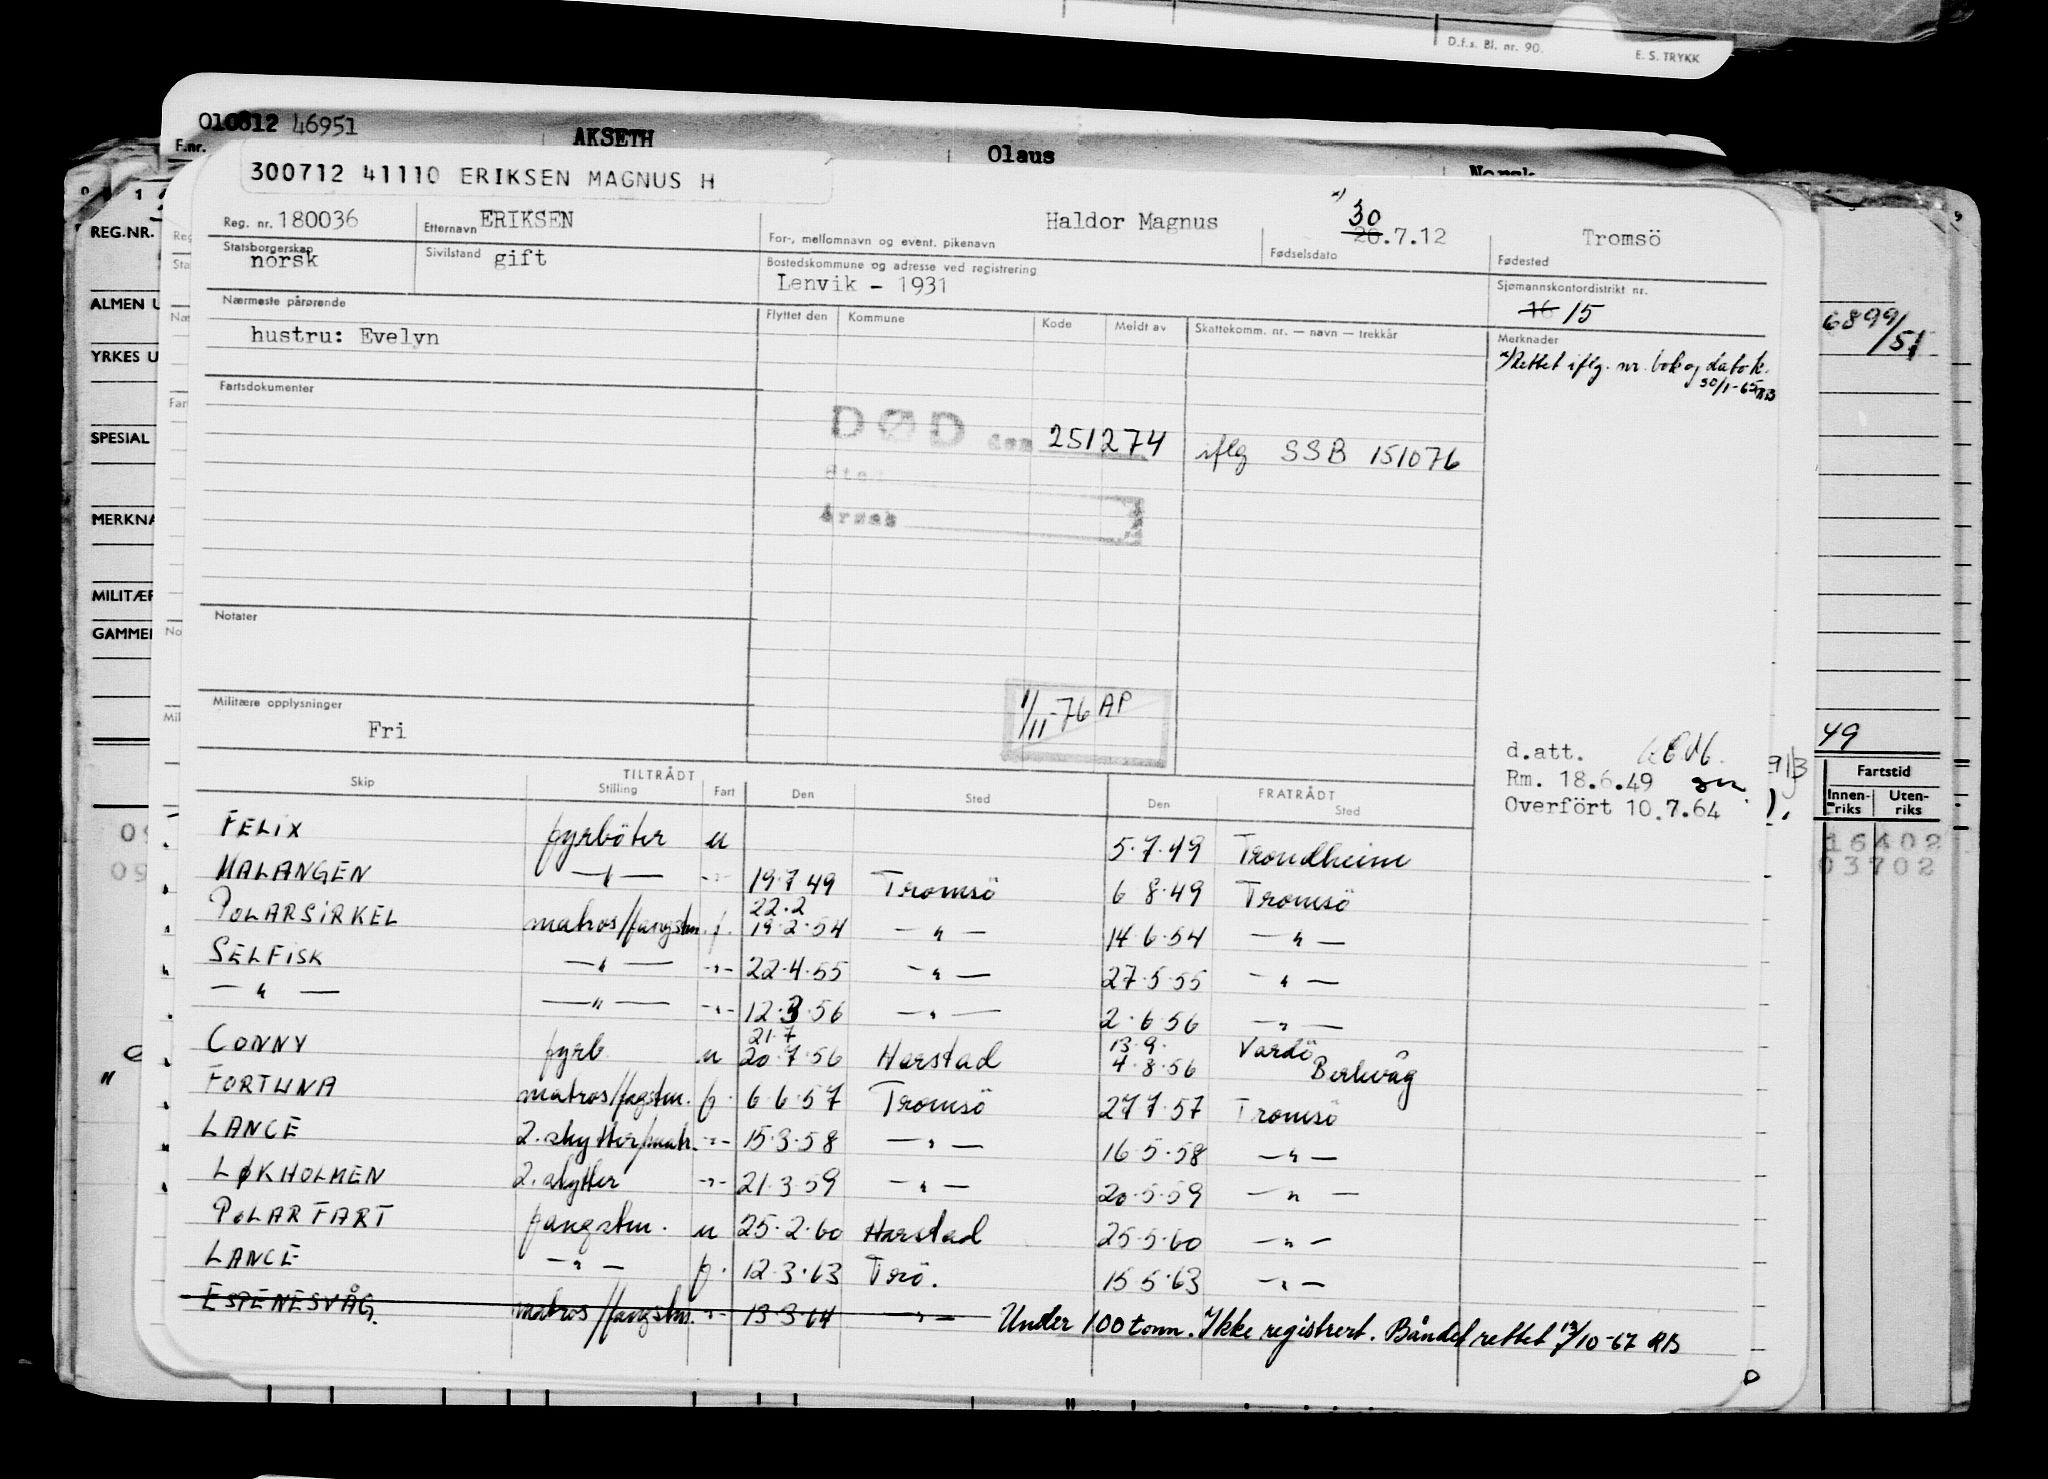 D.f.s. Bl. nr. 90.
E. S. TRYKK
010812 46951
F.nr.
AKSETH
Olaus
Norsk
300712 41110 ERIKSEN MAGNUS H
REG.NR.
ALMEN U
YRKES U
SPESIAL
MERKNA
MILITÆR
GAMMEL
Reg. nr. 180036
Etternavn ERIKSEN
For-, mellomnavn og event. pikenavn
Haldor Magnus
x) 30
20.7.12
Fødselsdato
Tromsö
Fødested
Statsborgerskap
norsk
Sivilstand gift
Bostedskommune og adresse ved registrering
Lenvik - 1931
Sjømannskontordistrikt nr.
16 15
Nærmeste pårørende
hustru: Evelyn
Flyttet den
Kommune
Kode
Meldt av
Skattekomm. nr. — navn — trekkår
Merknader
x) Rettet iflg. nr. bok og datok.
30/1-65 RB
6899/51
Fartsdokumenter
DØD den 251274 iflg SSB 151076
Sted
Årsak
Notater
Militære opplysninger
Fri
1/11-76 AP
d.att.
Rm. 18.6.49
Overfört 10.7.64
49
Fartstid
Innen-riks
Uten-riks
16402
03702
TILTRÅDT
FRATRÅDT
Skip
Stilling
Fart
Den
Sted
Den
Sted
FELIX fyrböter u 5.7.49 Trondheim
MALANGEN —"— -"- 19.7 49 Tromsö 6 8.49 Tromsö
22.2
POLARSIRKEL matros/fangstm. f. 19.2.54 —"— 14.6.54 —"—
SELFISK —"— -"- 22.4.55 —"— 27.5.55 —"—
—"— —"— -"- 12.3.56 —"— 2.6.56 —"—
21.7 13.9. Vardö
CONNY fyrb. u 20.7.56 Harstad 4.8.56 Berlevåg
FORTUNA matros/fagstm. f. 6.6.57 Tromsö 27 7.57 Tromsö
LANCE 2. skytter/matr. -"- 15.3.58 —"— 16.5.58 —"—
LØKHOLMEN 2. skytter -"- 21.3.59 —"— 20.5.59 —"—
POLARFART fangstm. u 25.2.60 Harstad 25.5.60 —"—
LANCE —"— f. 12.3.63 Trö. 15 5.63 —"—
ESPENESVÅG. matros/fangstm. -"- 13.3.64 —"— Under 100 tonn. Ikke registrert. Båndet rettet 13/10-67 RB